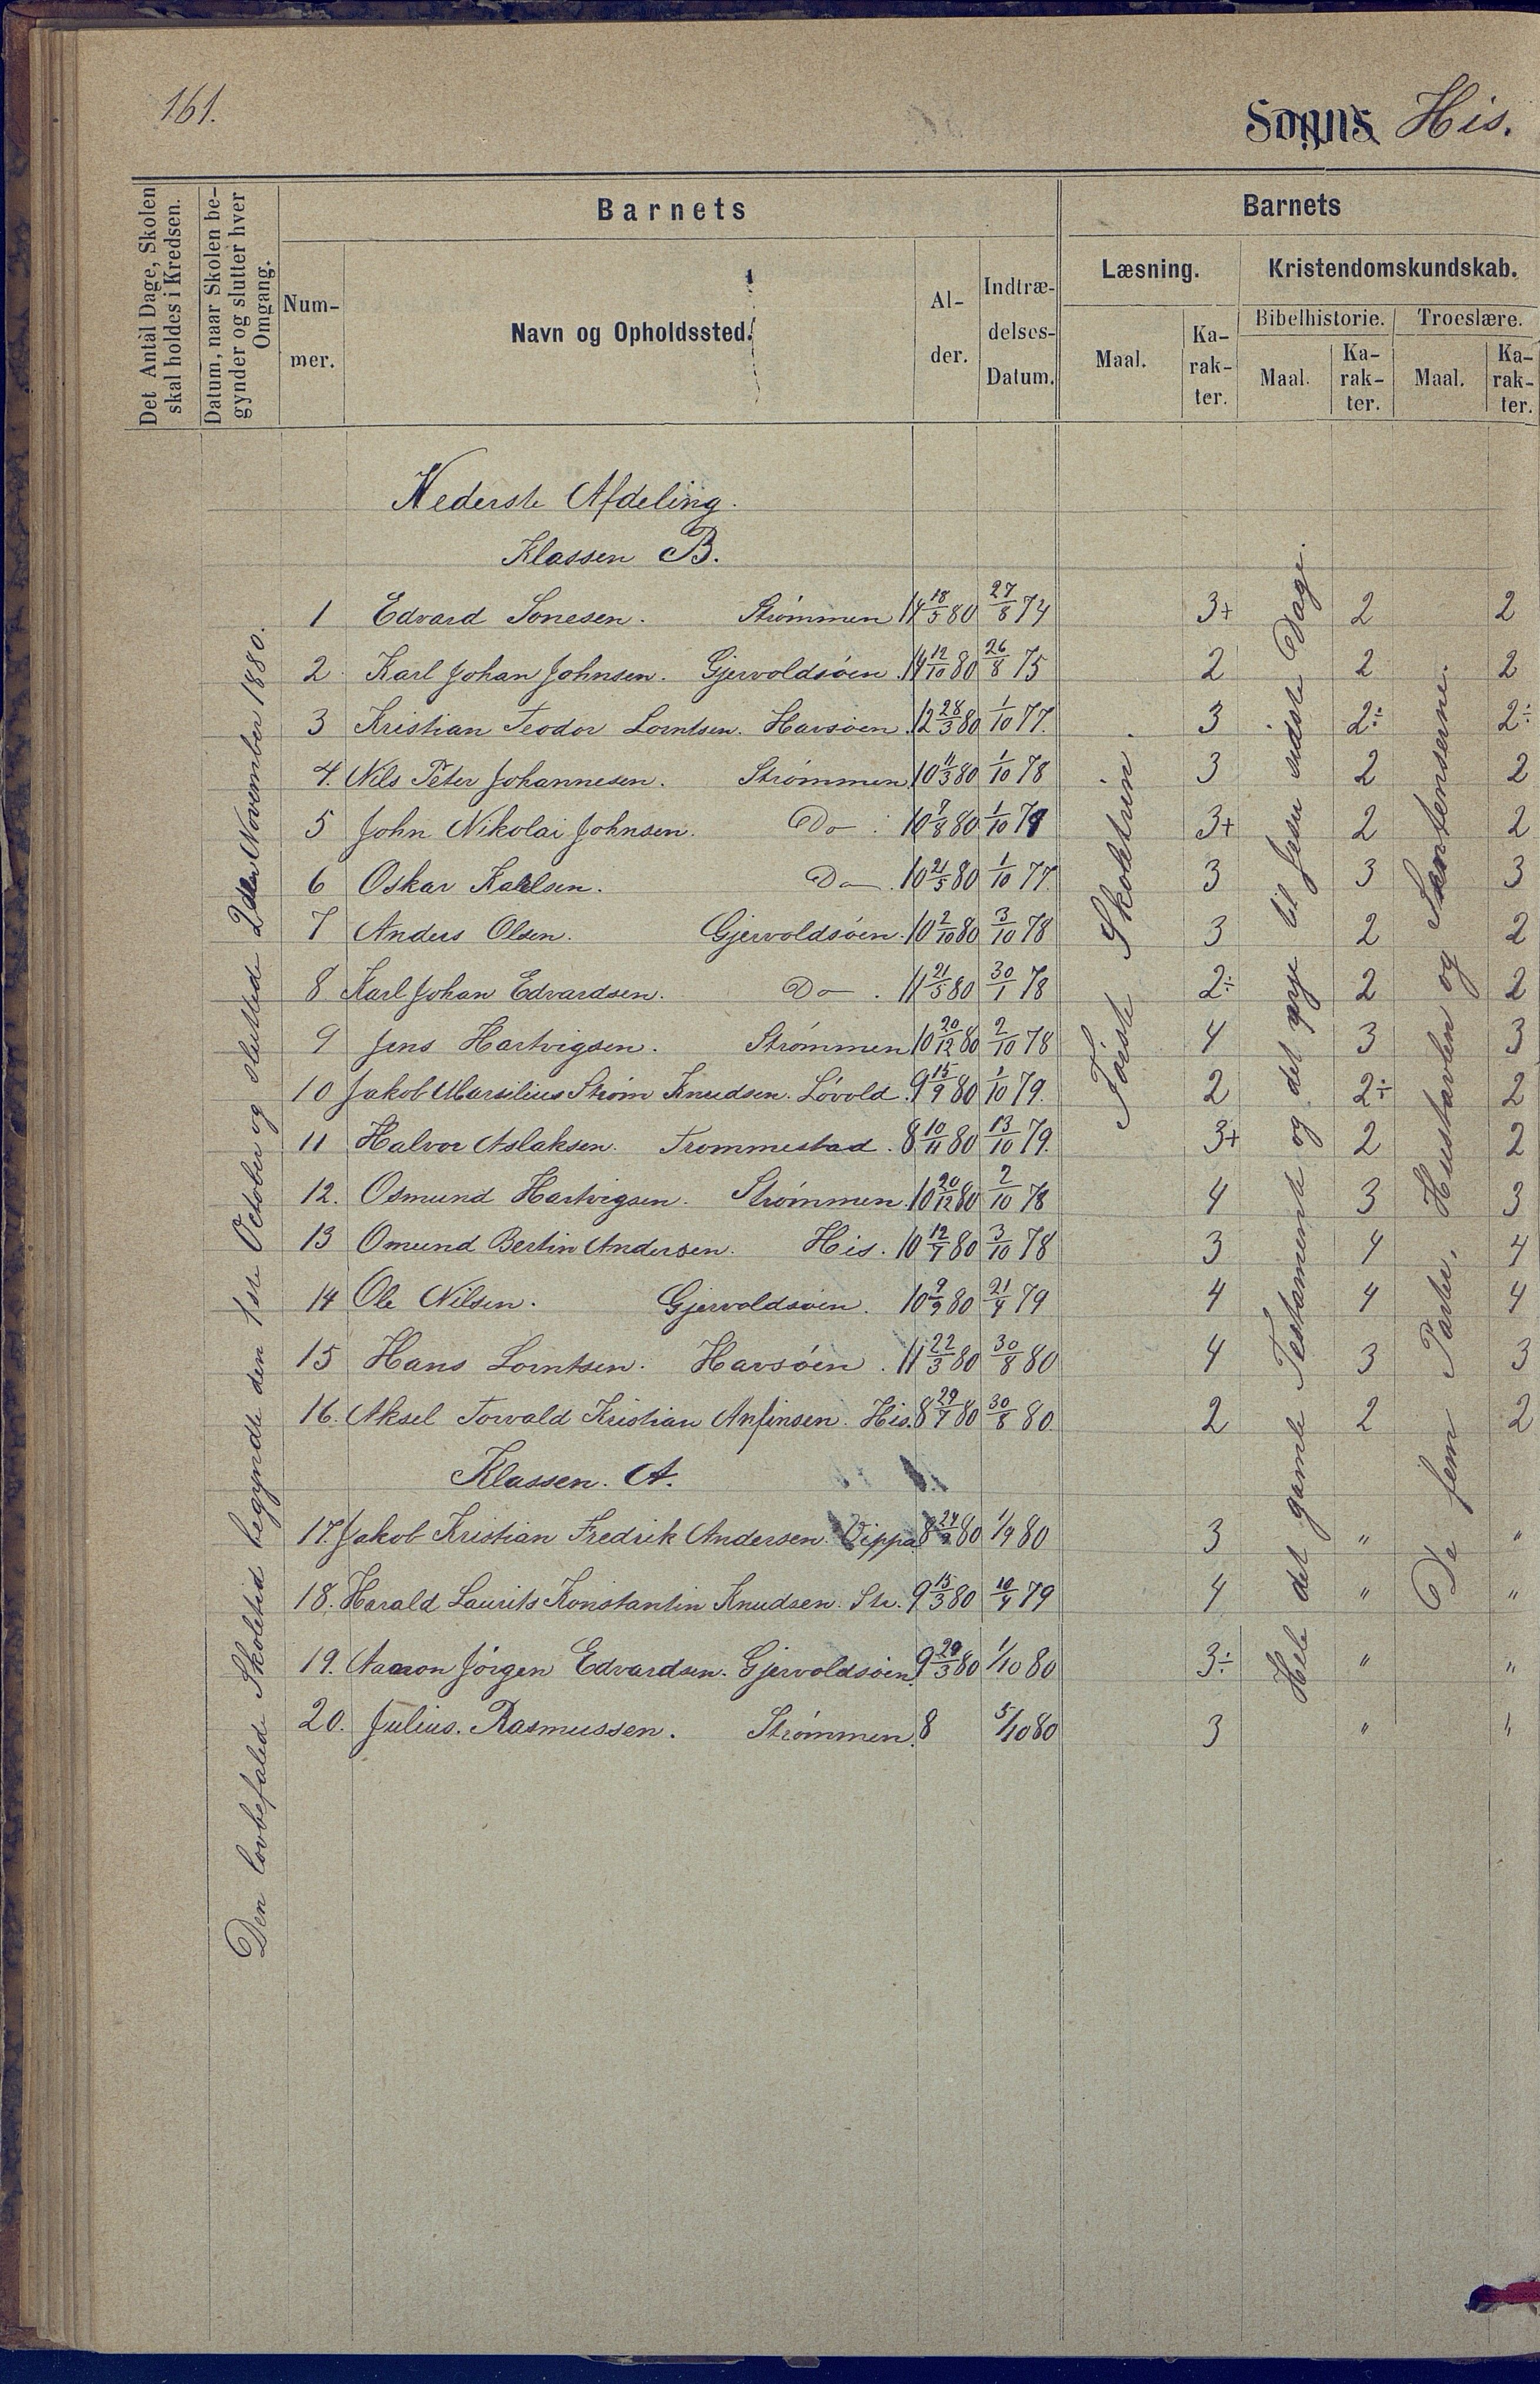 161.
Sogns His.
Det Antal Dage, Skolen skal holdes i Kredsen.
Datum, naar Skolen begynder og slutter hver Omgang.
Barnets
Barnets
Num-mer.
Navn og Opholdssted.
Al-der.
Indtræ-delses-Datum.
Læsning.
Kristendomskundskab.
Bibelhistorie.
Troeslære.
Maal.
Ka-rak-ter.
Maal.
Ka-rak-ter.
Maal.
Ka-rak-ter.
Den lovbefalede Skoletid begyndte den 1ste October og sluttede 2den November 1880.
Første Skoletrin.
Hele det gamle Testamente og det nye til Jesu sidste Dage.
De fem Parter, Hustavlen og Sentenserne.
Nederste Afdeling.
Klassen B.
1 Edvard Tonesen. Strømmen 14 18/5 80 27/8 74 3+ 2 2
2 Karl Johan Johnsen. Gjervoldsøen. 14 12/10 80 26/8 75 2 2 2
3 Kristian Teodor Lorntsen. Havsøen. 12 28/3 80 1/10 77. 3 2÷ 2÷
4. Nils Peter Johannesen. Strømmen. 10 11/3 80 1/10 78 3 2 2
5 John Nikolai Johnsen. Do 10 9/8 80 1/10 79 3+ 2 2
6 Oskar Kallsen. Do 10 21/5 80 1/10 77. 3 3 3
7 Anders Olsen. Gjervoldsøen. 10 2/10 80 3/10 78 3 2 2
8 Karl Johan Edvardsen. Do. 11 21/5 80 30/1 78 2÷ 2 2
9 Jens Hartvigsen. Strømmen 10 20/12 80 2/10 78 4 3 3
10 Jakob Marsilius Strøm Knudsen. Løvold. 9 15/9 80 1/10 79. 2 2÷ 2
11 Halvor Aslaksen. Trommestad. 8 10/11 80 13/10 79. 3+ 2 2
12. Osmund Hartvigsen. Strømmen. 10 20/12 80 2/10 78 4 3 3
13 Omund Bertin Andersen. His. 10 12/7 80 3/10 78 3 4 4
14 Ole Nilsen. Gjervoldsøen. 10 9/9 80 21/4 79 4 4 4
15 Hans Lorntsen. Havsøen. 11 22/3 80 30/8 80 4 3 3
16. Aksel Torvald Kristian Anfinsen. His. 8 29/7 80 30/8 80. 2 2 2
Klassen. A.
17. Jakob Kristian Fredrik Andersen. Vippa. 8 80 1/9 80 3 " "
18. Harald Laurits Konstantin Knudsen. Str. 9 15/3 80 10/4 79 4 " "
19. Aaron Jørgen Edvardsen. Gjervoldsøen. 9 29/3 80 1/10 80 3÷ " "
20. Julius. Rasmussen. Strømmen. 8 5/10 80 3 " "